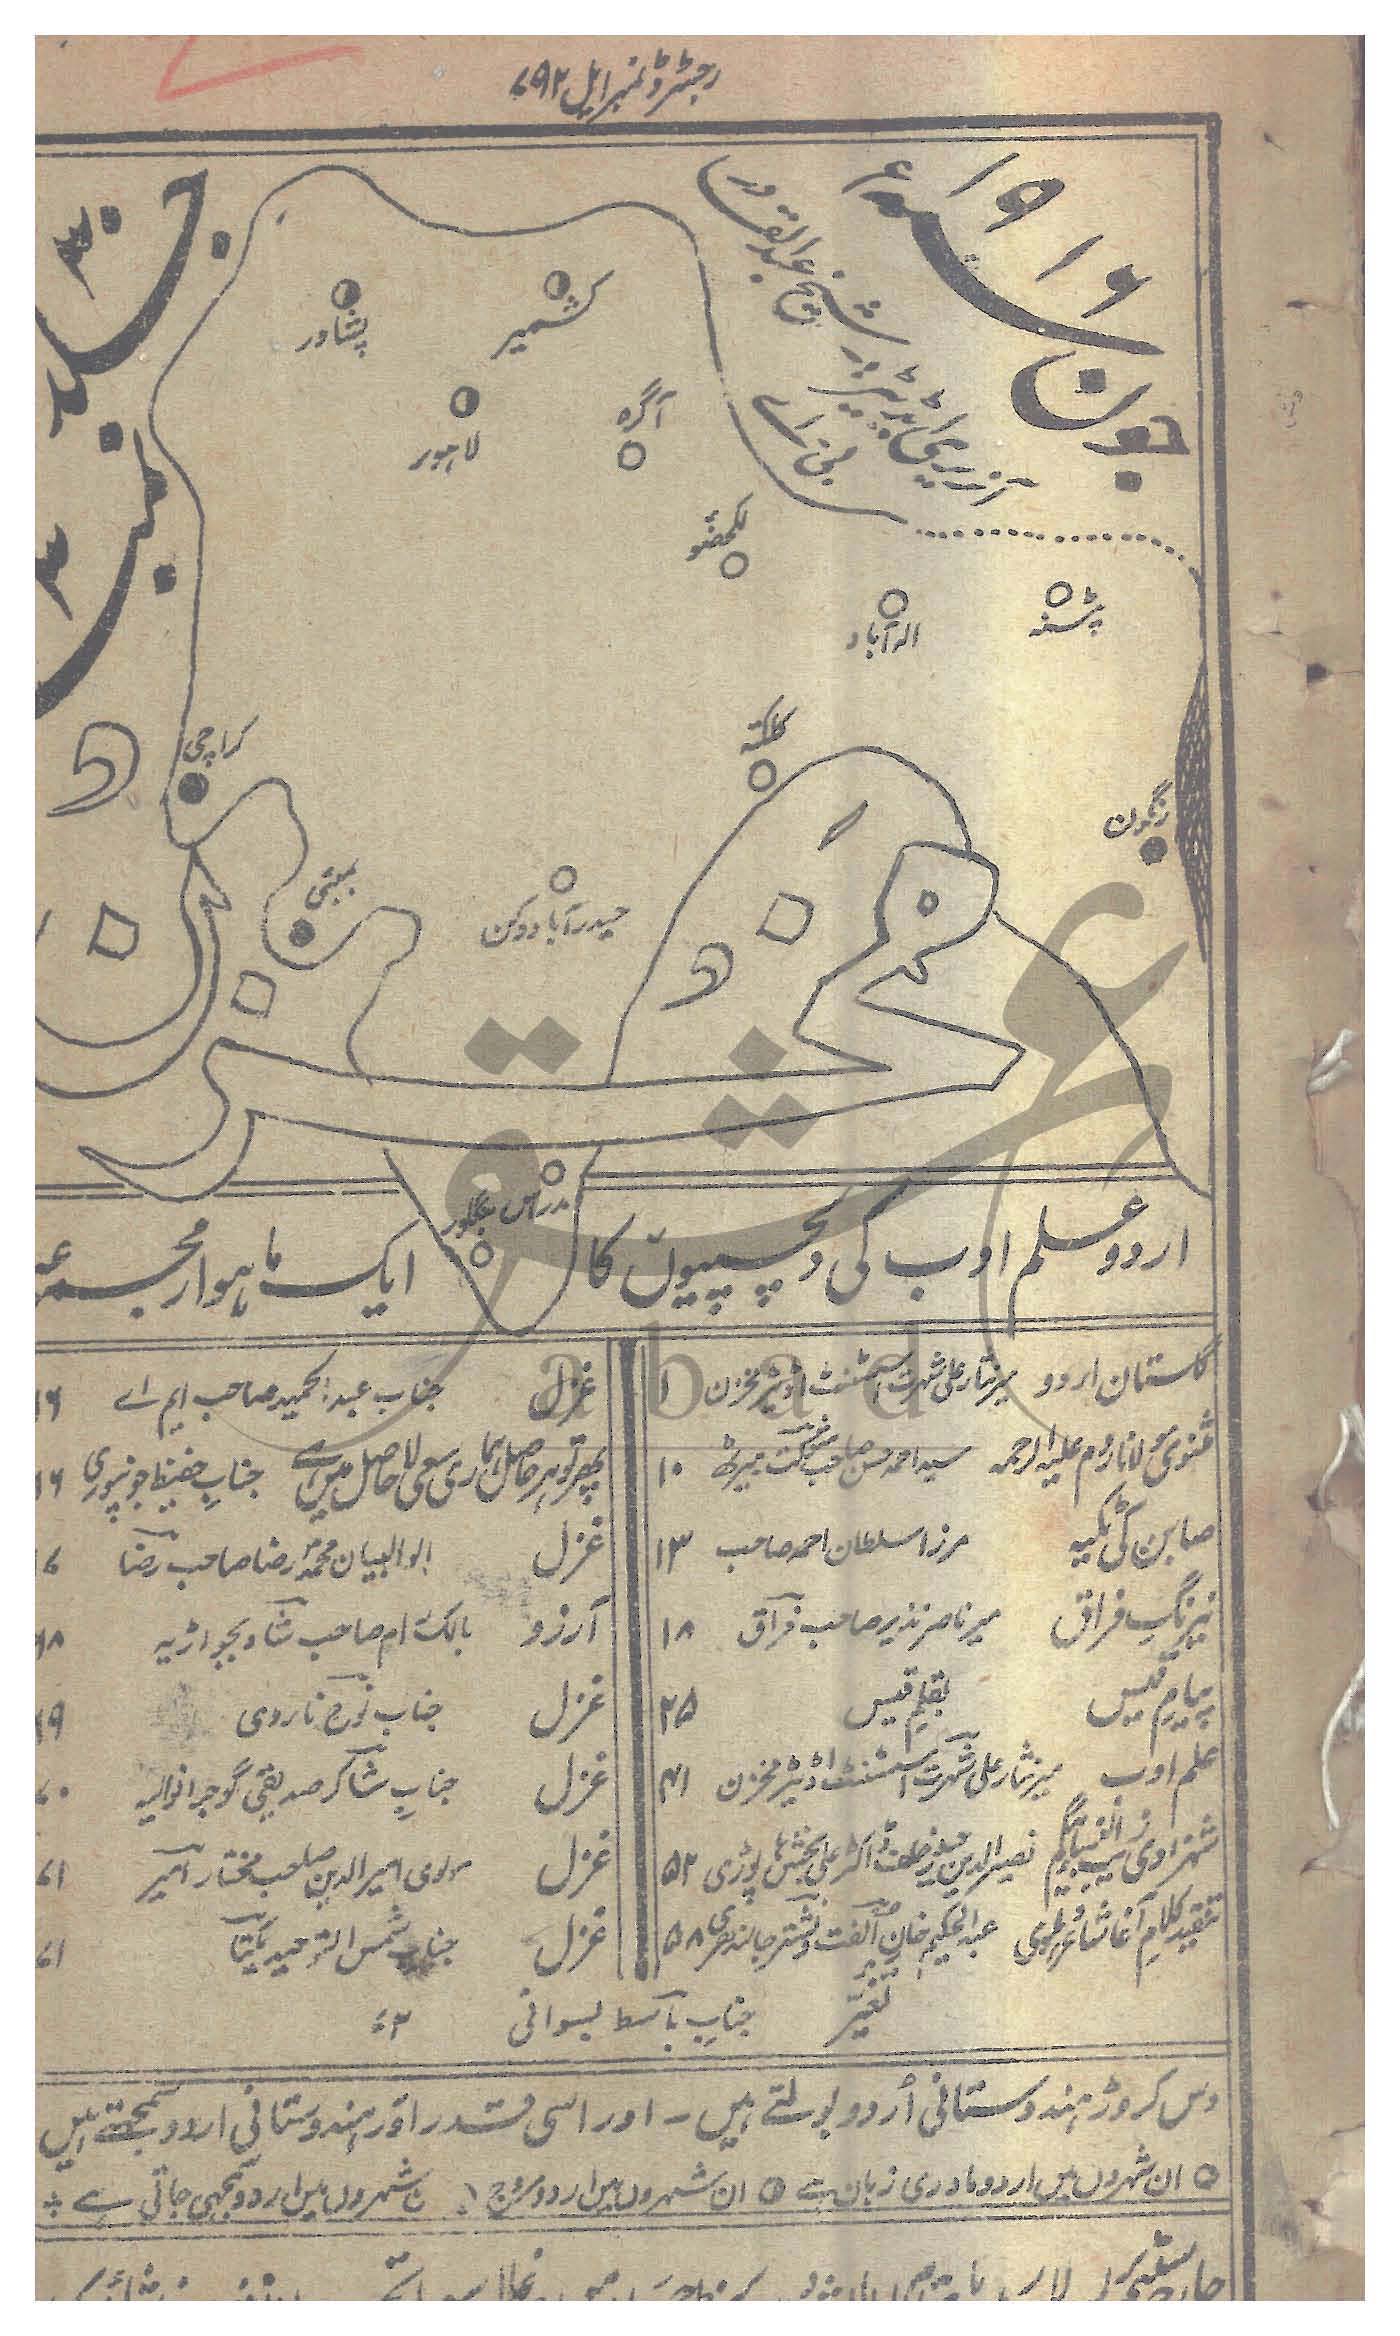 رجسٹرڈ نمبر ایل ۶۹۲
جون ۱۹۱۶ سنہ ء
شیخ عبدالقادر
آنریری ایڈیٹر
مخزن
جلد ۳۰
نمبر ۳
پشاور
کشمیر
لاہور
آگرہ
لکھنؤ
الہ آباد
پٹنہ
کراچی
کلکتہ
رنگون
بمبئی
حیدرآباد دکن
مدراس
بنگلور
اردو علم ادب کی دلچسپیوں کا ایک ماہوار مجموعہ
گلستان اردو میر نثار علی شہرت اسسٹنٹ اڈیٹر مخزن ۱
مثنوی مولانا روم علیہ الرحمہ سید احمد حسن صاحب شوکت میرٹھ ۱۰
صابن کی ٹکیہ مرزا سلطان احمد صاحب ۱۳
نیرنگِ فراق میر ناصر نذیر صاحب فراق ۱۸
پیامِ قیس بقلمِ قیس ۲۵
علم ادب میر نثار علی شہرت اسسٹنٹ اڈیٹر مخزن ۴۱
شہزادی زیب النسا بیگم نصیر الدین حیدر خلف ڈاکٹر علی بخش ۵۲
تنقید کلامِ آغا شاعر دہلوی عبدالحکیم خان نشتر جالندھری ۵۸
غزل جناب عبدالحمید صاحب ایم اے ۶۶
پھر تو ہر حاصل ہماری سعی لاحاصل میں ہے جنابِ حفیظ جونپوری ۶۶
غزل ابوالبیان محمد رضا صاحب رضا
آرزو بالک رام صاحب شاد بجواڑیہ ۶۸
غزل جناب نوح ناروی ۶۹
غزل جنابِ شاکر صدیقی گوجرانوالیہ ۷۰
غزل مولوی امیر الدین صاحب مختار امیر ۷۱
غزل جناب شمس التوحید یکتا ۷۱
تغیّر جنابِ باسط بسوانی ۷۲
دس کروڑ ہندوستانی اُردو بولتے ہیں ۔ اور اسی قدر اور ہندوستانی اردو سمجھتے ہیں
ان شہروں میں اردو مادری زبان ہے ان شہروں میں اردو مروج ن شہروں میں اردو سمجھی جاتی ہے